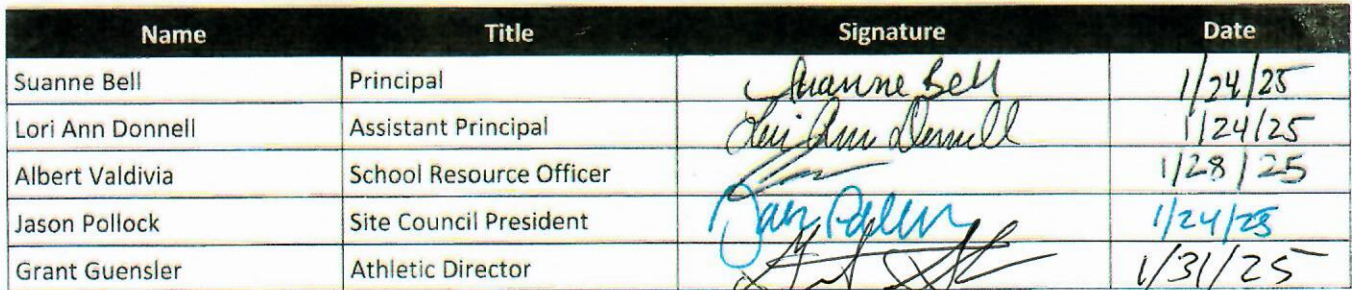 Name Title Signature Date
Suanne Bell Principal Suanne Bell 1/24/25
Lori Ann Donnell Assistant Principal Lori Ann Donnell 1/24/25
Albert Valdivia School Resource Officer 1/28/25
Jason Pollock Site Council President 1/24/25
Grant Guensler Athletic Director 1/31/25